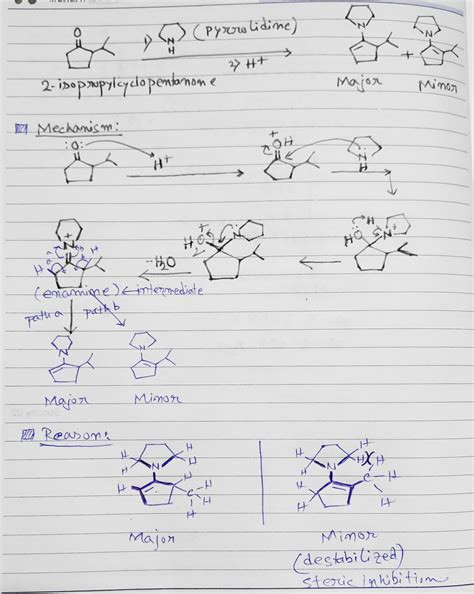 O
1) N H (Pyrrolidine)
2) H+
N
+
N
2-isopropylcyclopentanone
Major
Minor
Mechanism:
:O:
H+
+
OH
N
H
-H2O
(enamine) ← intermediate
path a
path b
Major
Minor
Reason:
Major
Minor
(destabilized)
steric inhibition